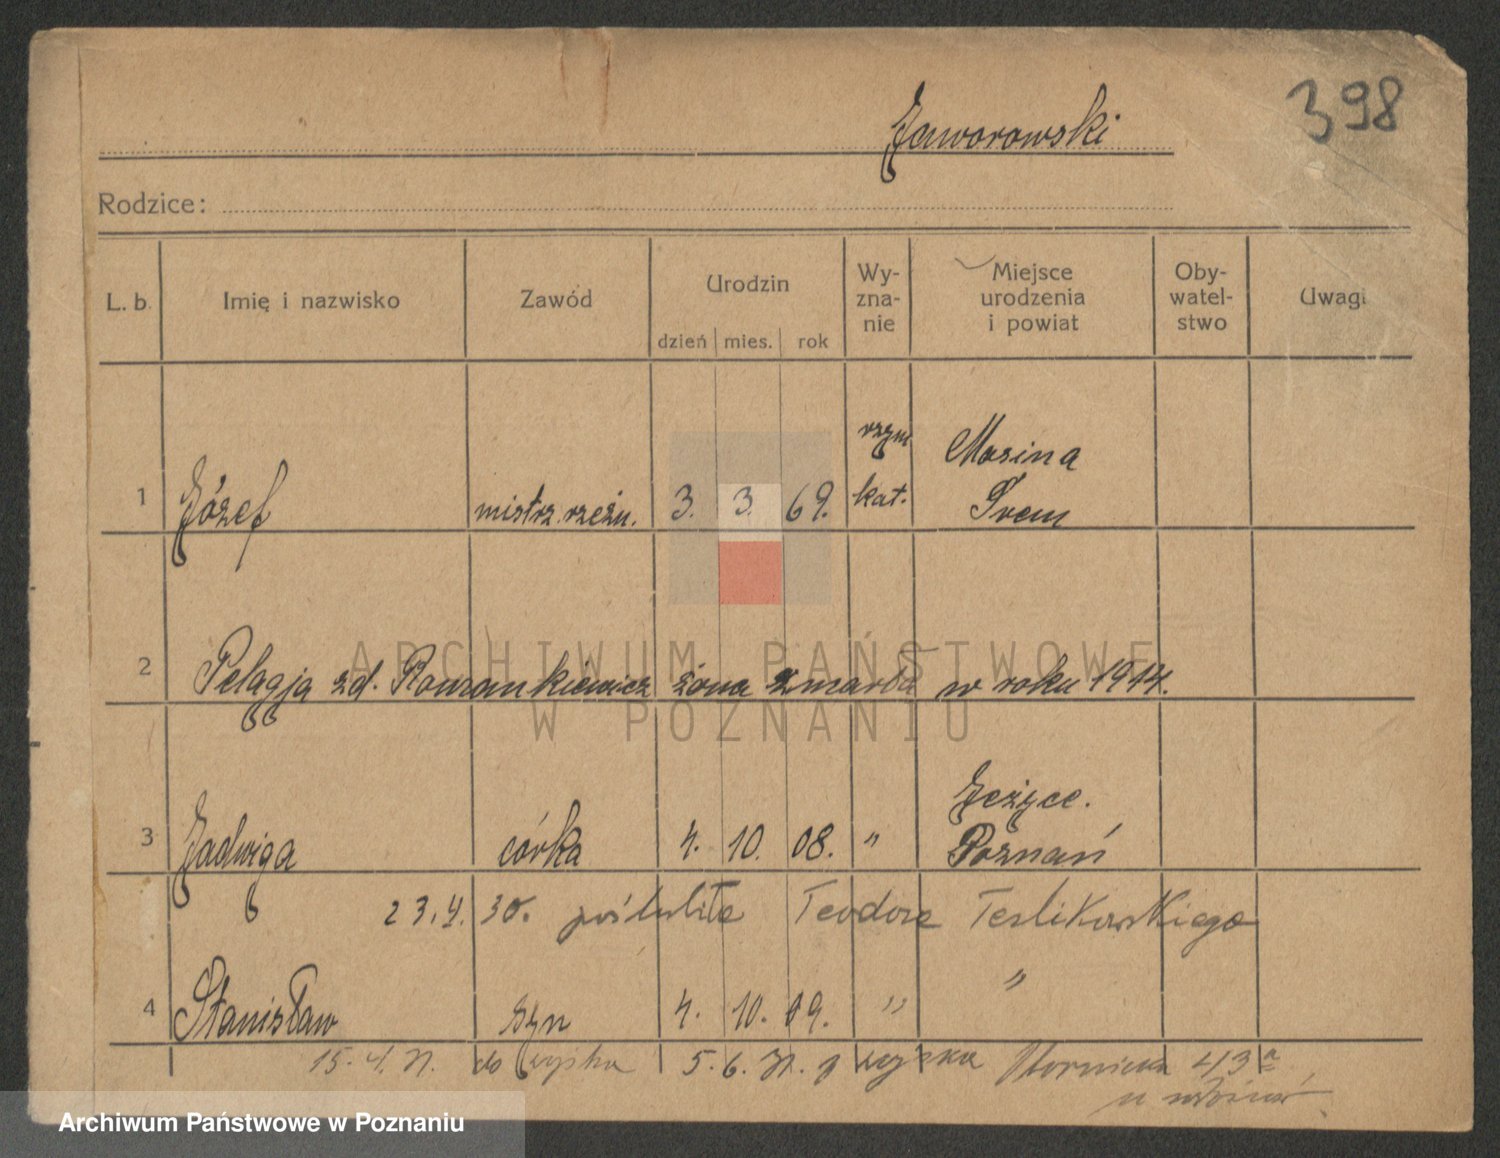 398
Jaworowski
Rodzice:
L. b. Imię i nazwisko Zawód Urodzin dzień mies. rok Wy-zna-nie Miejsce urodzenia i powiat Oby-watel-stwo Uwagi
1 Józef mistrz rzeźn. 3. 3. 69. rzym kat. Mosina Śrem
2 Pelagja zd. Romankiewicz żona zmarła w roku 1914.
3 Jadwiga córka 4. 10. 08. " Jeżyce. Poznań
23.4. 30. poślubiła Teodora Teslikowskiego
4 Stanisław syn 4. 10. 09. " "
15. 4. 31. do wojska 5. 6. 31. z wojska 43a
ARCHIWUM PAŃSTWOWE
W POZNANIU
Archiwum Państwowe w Poznaniu